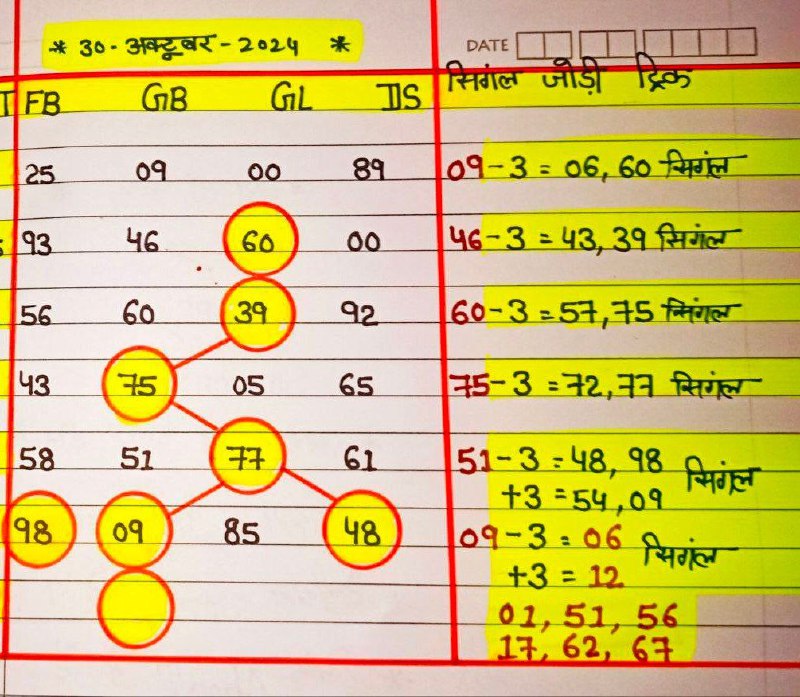 * 30 - अक्टूबर - 2024 *
DATE
सिगंल जोड़ी ट्रिक
FB GB GL DS
25 09 00 89
09 - 3 = 06, 60 सिगंल
93 46 60 00
46 - 3 = 43, 39 सिगंल
56 60 39 92
60 - 3 = 57, 75 सिगंल
43 75 05 65
75 - 3 = 72, 77 सिगंल
58 51 77 61
51 - 3 = 48, 98 सिगंल
+3 = 54, 09
98 09 85 48
09 - 3 = 06 सिगंल
+3 = 12
01, 51, 56
17, 62, 67